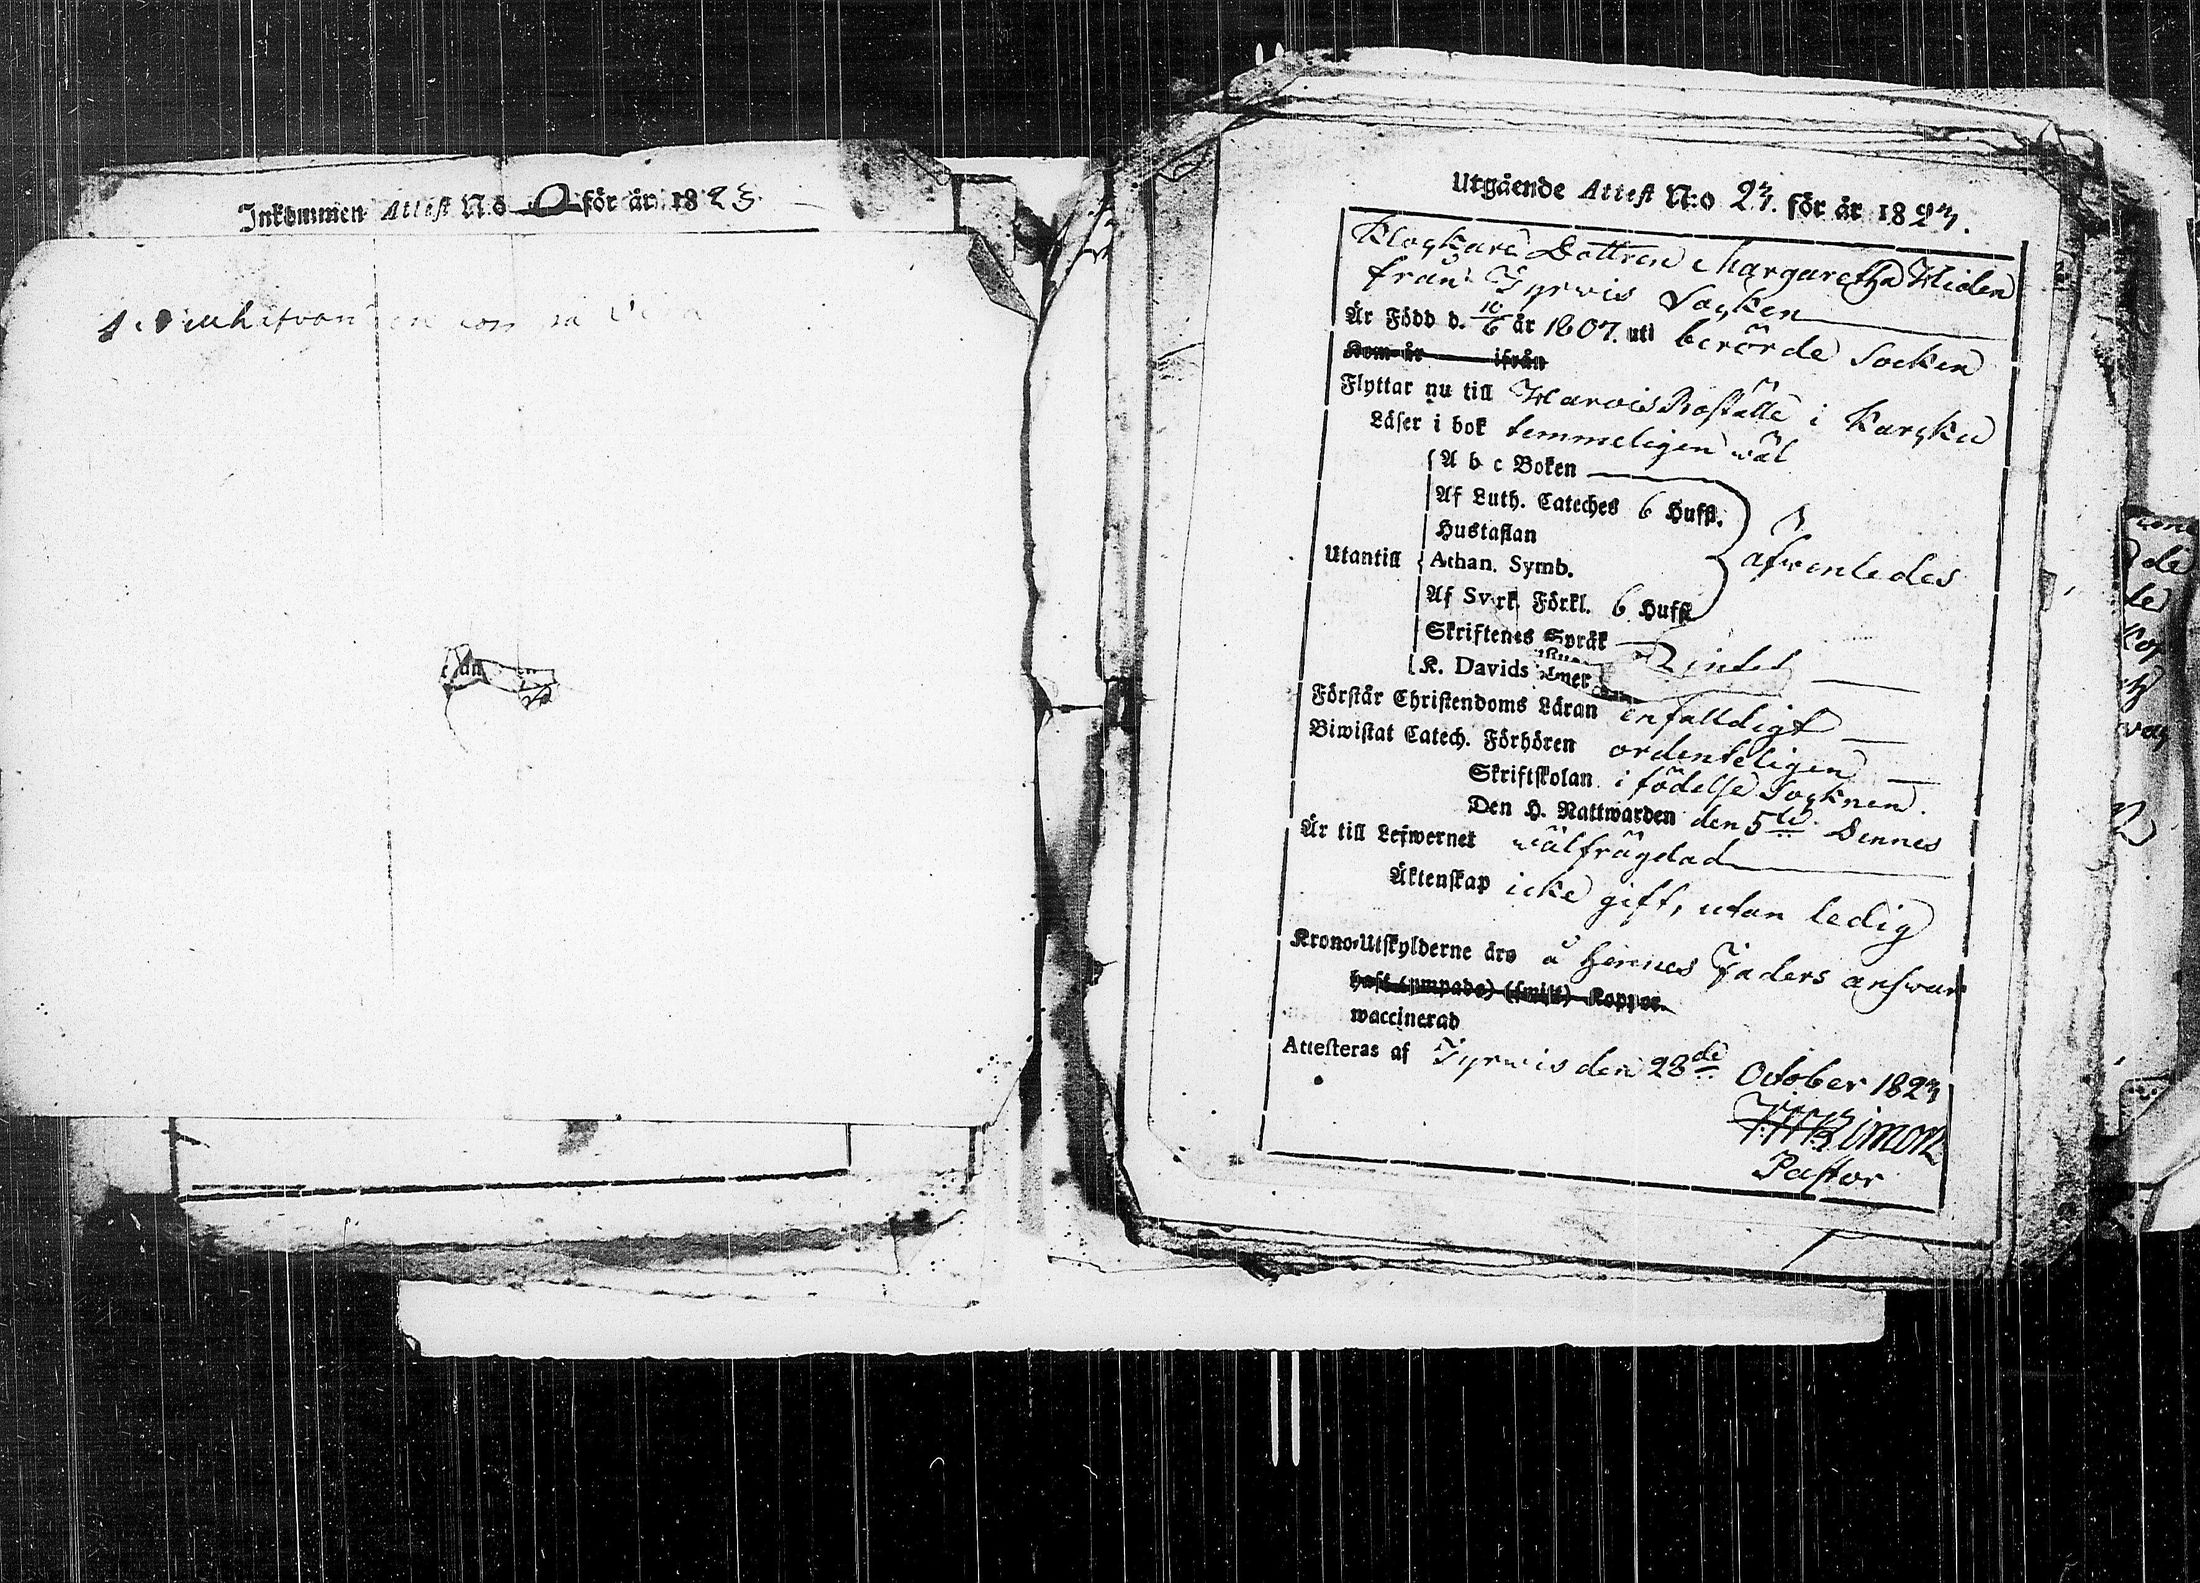 Inkommen Attest N:o 0 för år 1823
Utgående Attest N:o 23. för år 1823.
Klockare Dottren Margaretha Widen
från Tyrwis Socken
Är Född d. 10/6 år 1807. uti berörde Socken
Kom år ifrån
Flyttar nu till Warvis Boställe i Karcku
Läser i bok temmeligen wäl
A b c Boken
Af Luth. Cateches 6 Huffst.
Hustaflan
Utantill Athan. Symb. äfwenledes
Af Sv:rk. Förkl. 6 Huffst
Skriftenes Språk
K. Davids intet
Förstår Christendoms Läran enfalldigt
Biwistat Catech. Förhören ordenteligen
Skriftskolan i födelse Socknen.
Den H. Nattwarden den 5te Dennes
Är till Lefwernet wälfrägdad
Äktenskap icke gift, utan ledig
Krono-Utskylderne äro å hennes Faders answar
haft (ympade) (smitt) Koppor
waccinerad
Attesteras af Tyrwis den 28de October 1823
Pastor